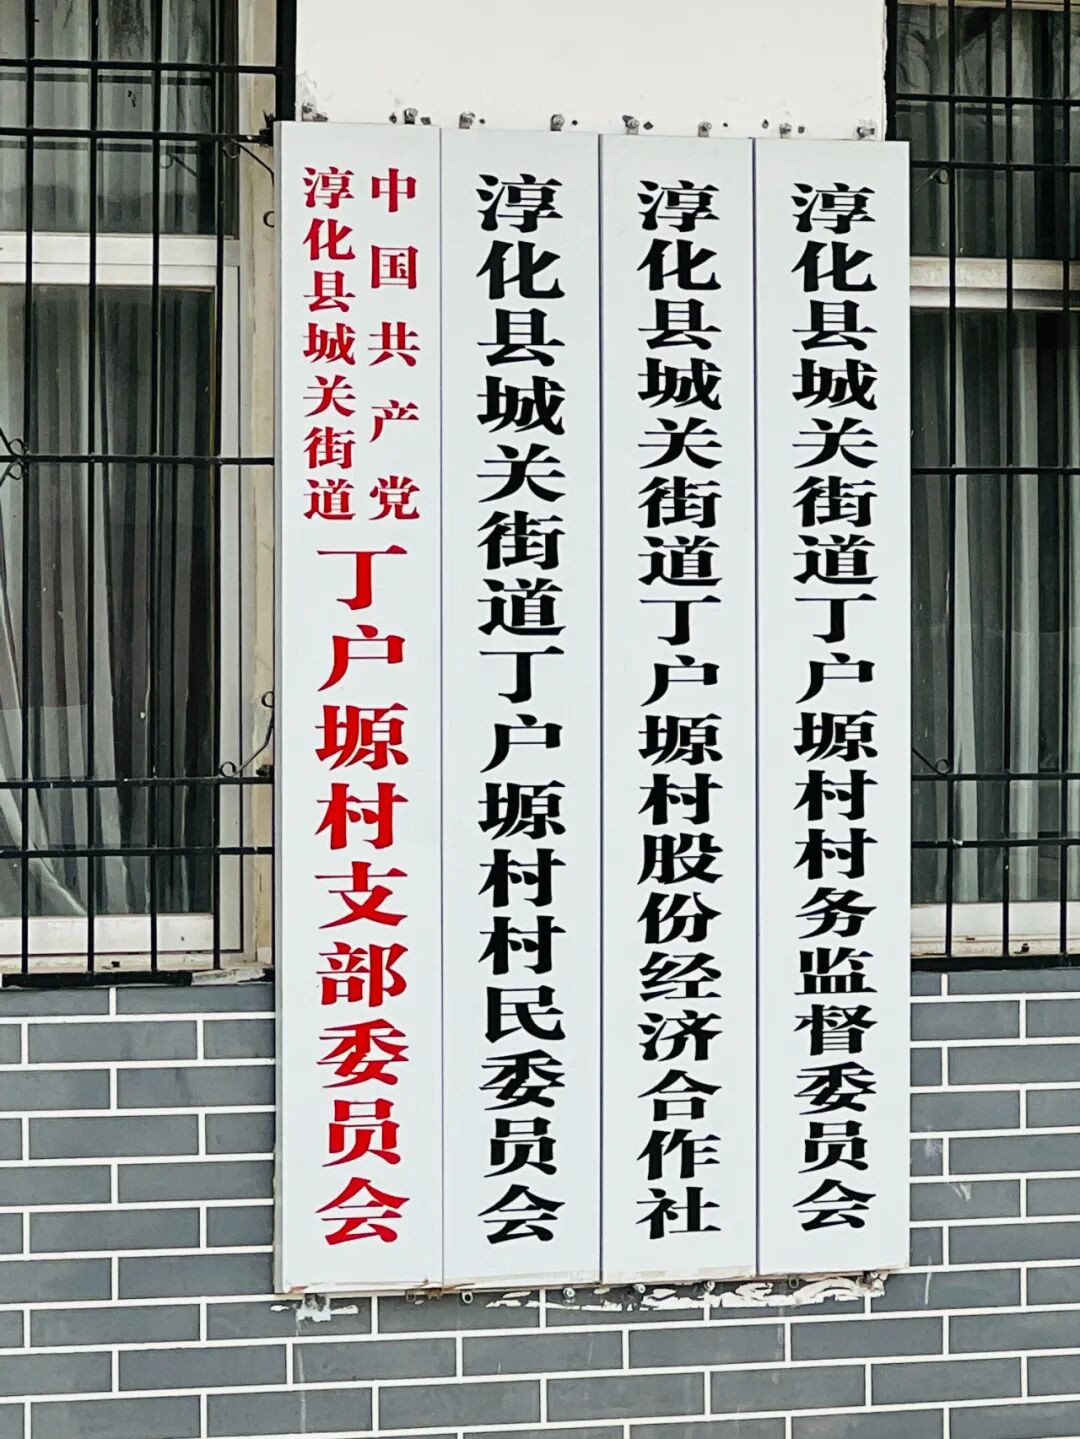 中国共产党
淳化县城关街道
丁户塬村支部委员会
淳化县城关街道丁户塬村村民委员会
淳化县城关街道丁户塬村股份经济合作社
淳化县城关街道丁户塬村村务监督委员会